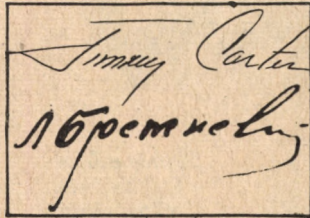 Jimmy Carter
Л Брежнев